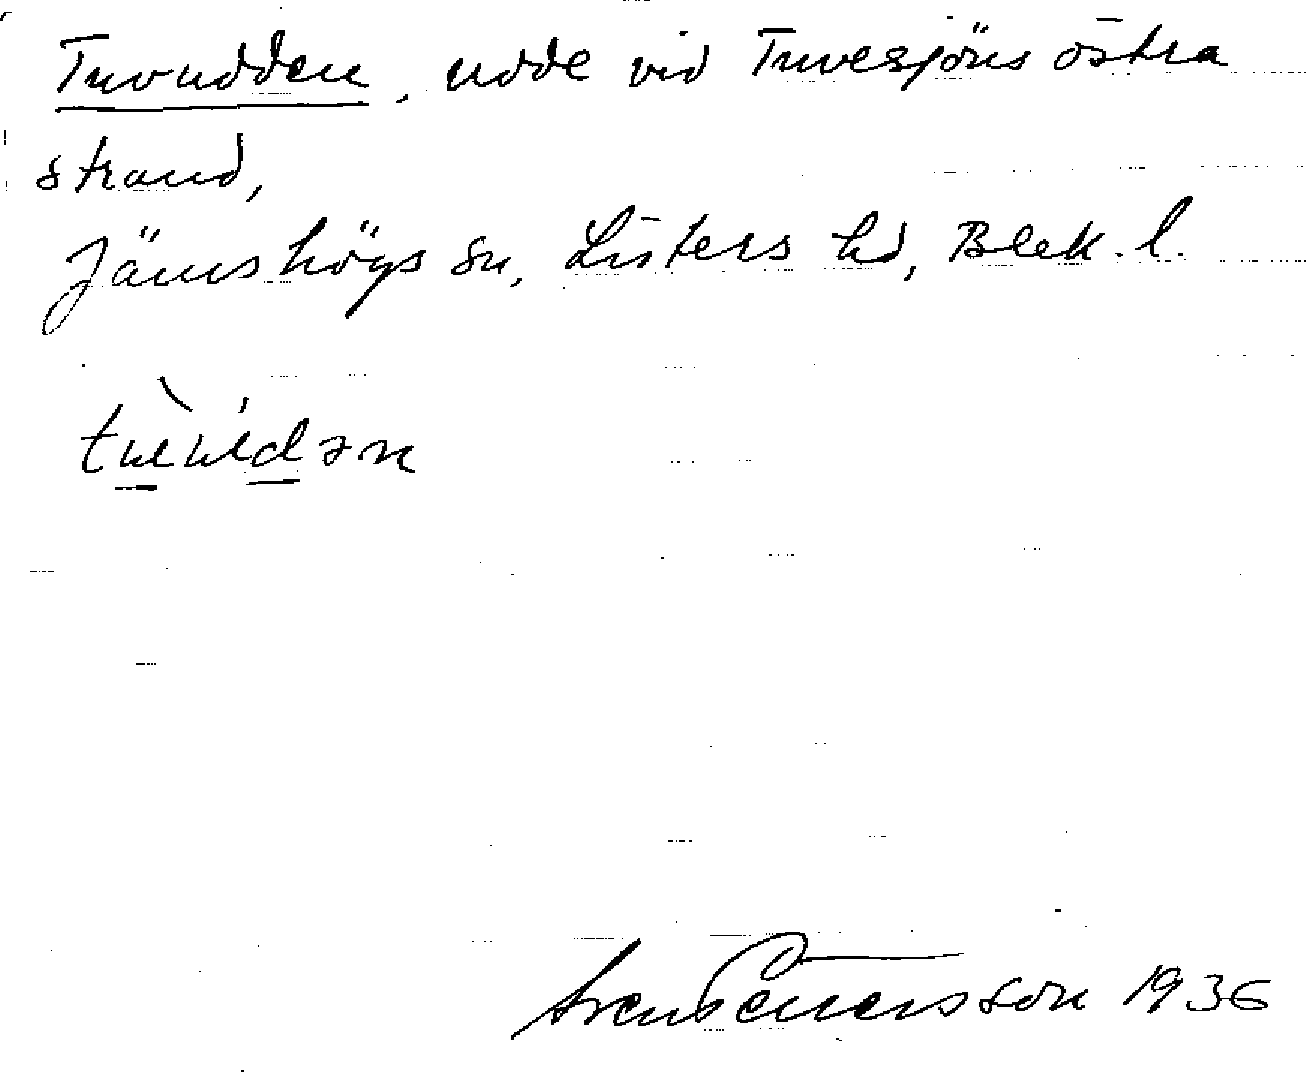 Tuvudden, udde vid Tuvesjöns östra
strand,
Jämshögs sn, Listers hd, Blek. l.
1936